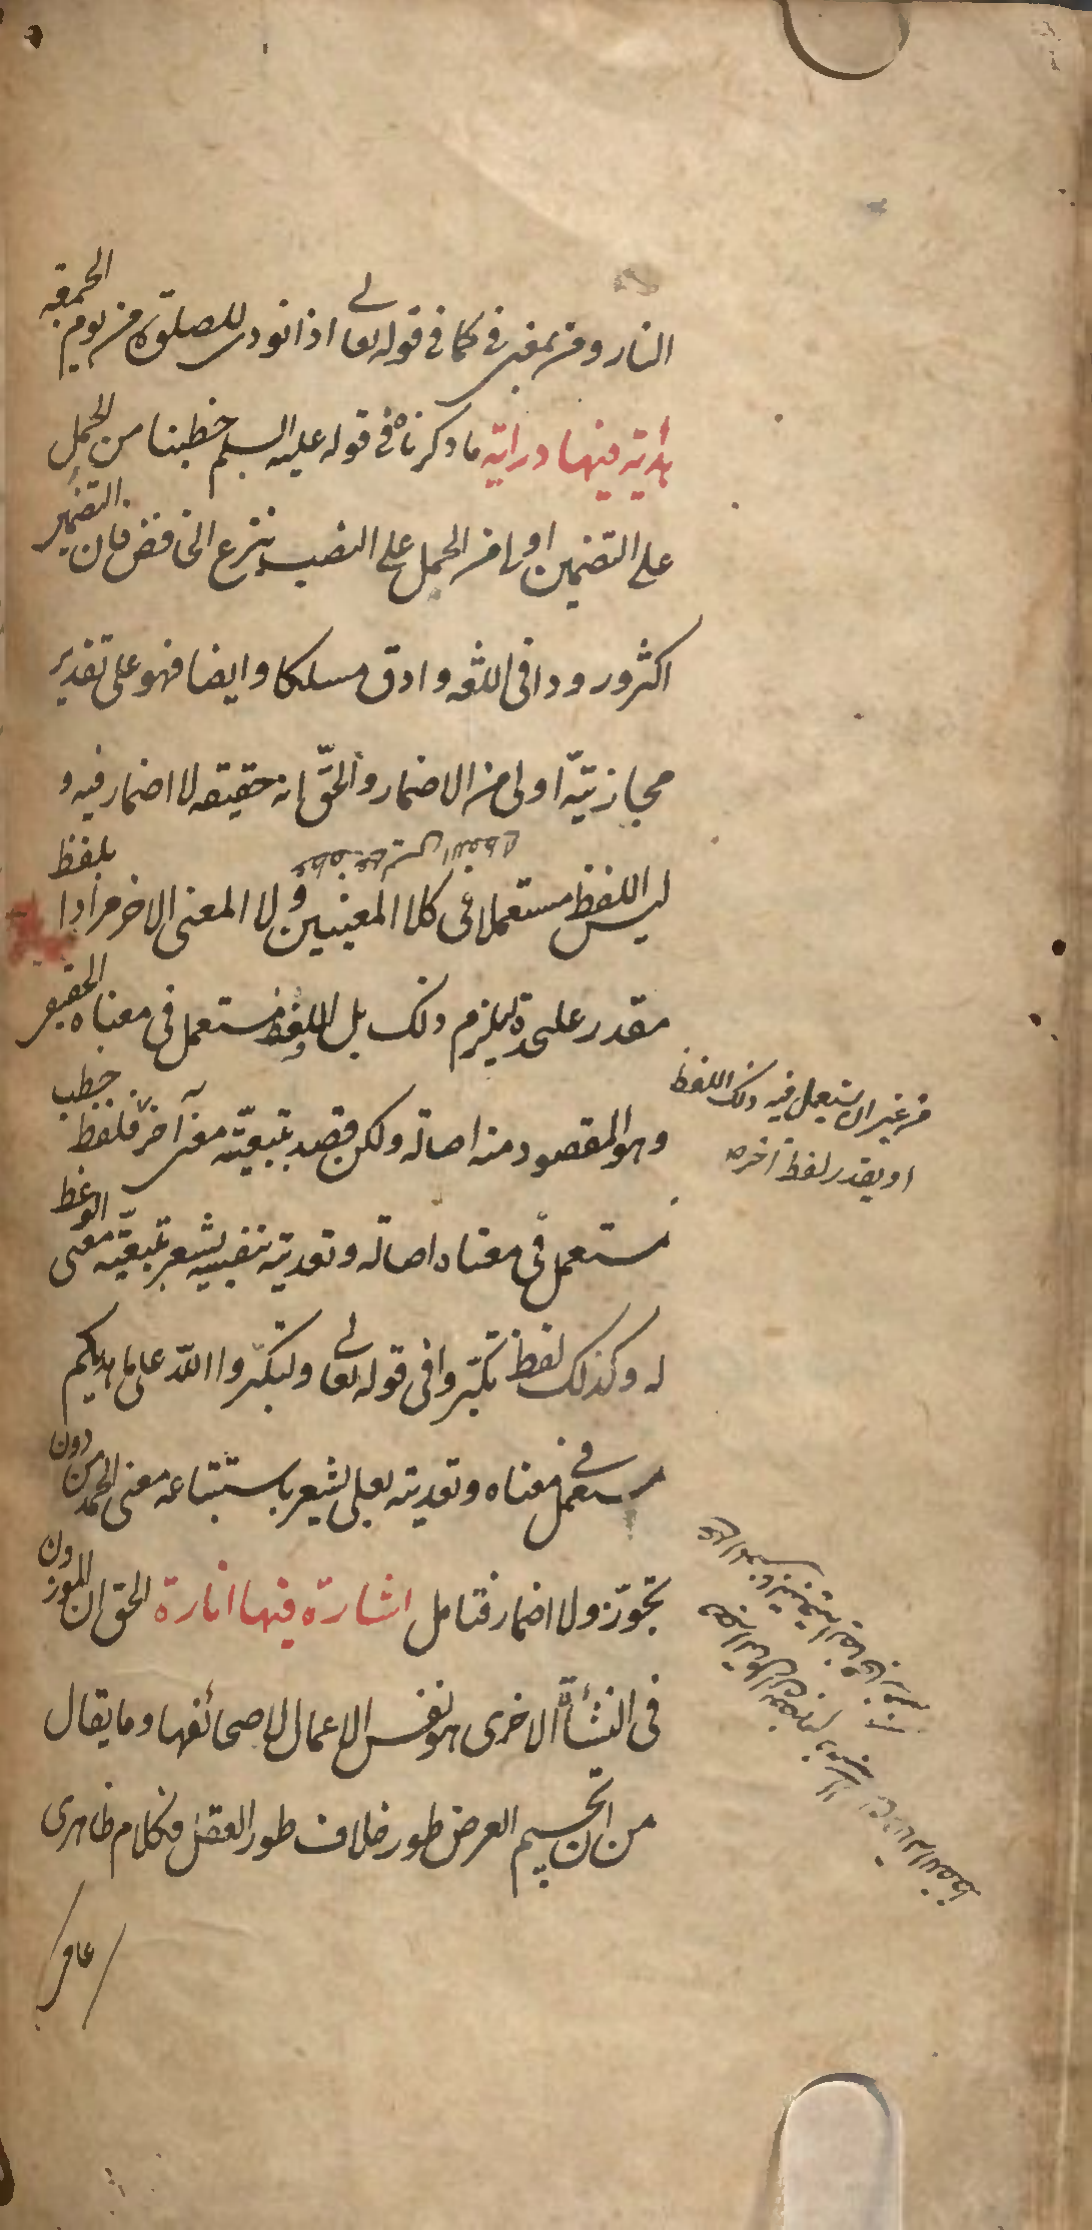 النار ومن بمعنى في كما في قوله تعالى اذا نودى للصلوة من يوم الجمعة
هداية فيها دراية ما ذكرناه في قوله عليه السلم خطبنا من الحمل
على التضمين اولى من الحمل على النصب بنزع الخافض فان التضمين
اكثر ورودا في اللغة وادق مسلكا وايضا فهو على تقدير
مجازيته اولى من الاضمار والحق انه حقيقه لا اضمار فيه و
ليس اللفظ مستعملا في كلا المعنيين ولا المعنى الاخر مرادا بلفظ
مقدر على حدة ليلزم ذلك بل اللفظ مستعمل في معناه الحقيقي
وهو المقصود منه اصالة ولكن قصد بتبعيته معنى آخر فلفظ خطب
من غير ان يستعمل فيه ذلك اللفظ
او يقدر لفظ آخر
مستعمل في معناه اصالة وتعديته بنفسه يشعر بتبعيته معنى الوعظ
له وكذلك لفظ تكبروا في قوله تعالى ولتكبروا الله على ما هديكم
مستعمل في معناه وتعديته بعلى يشعر باستتباعه معنى الحمد من دون
تجوّز ولا اضمار فتامل اشارة فيها انارة الحق ان الموزون
في النشأة الاخرى هو نفس الاعمال لا صحائفها وما يقال
من ان تجسيم العرض طور خلاف طور العقل فكلام ظاهرى
عامى